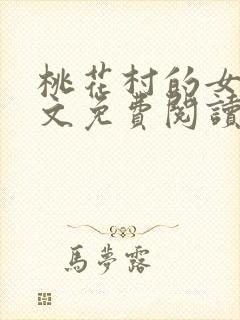 桃花村的女
文免費閱讀
馬夢露